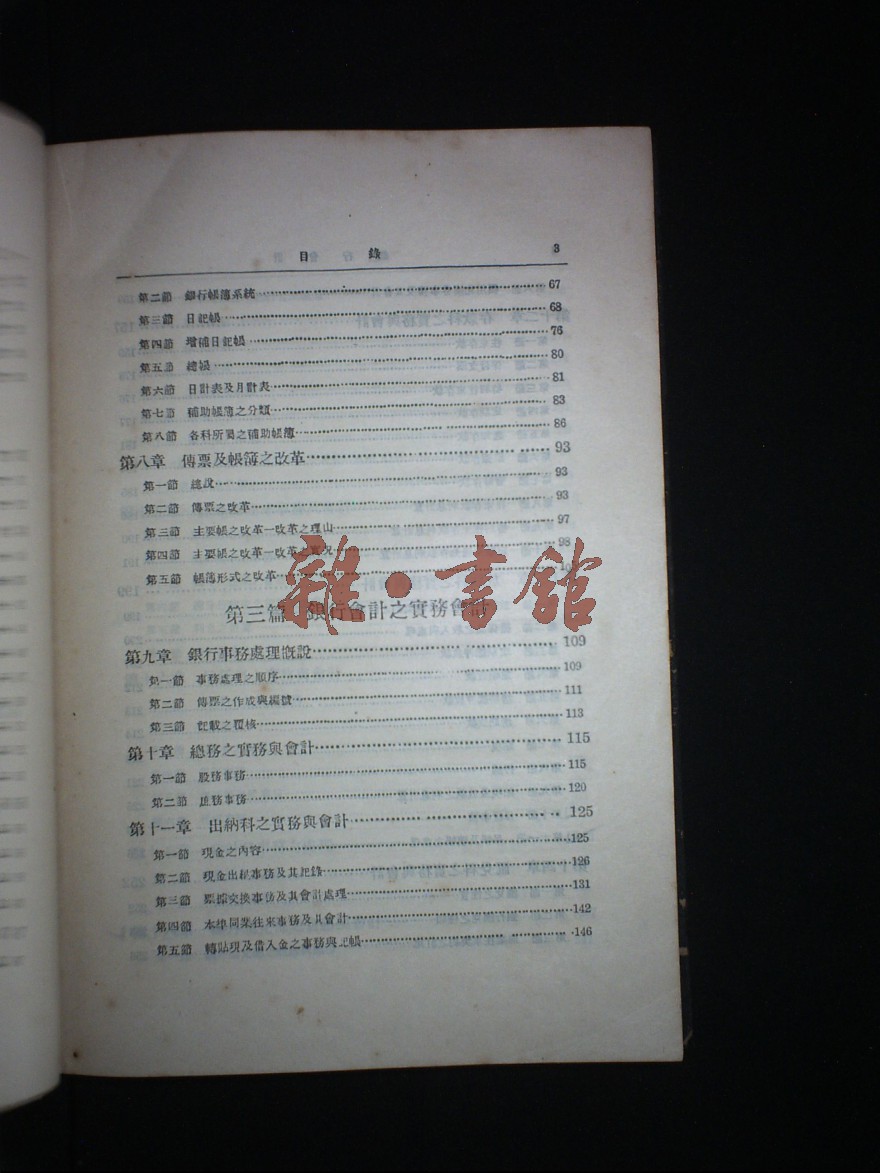 目 錄 3
第二節 銀行帳簿系統 67
第三節 日記帳 68
第四節 增補日記帳 76
第五節 總帳 80
第六節 日計表及月計表 81
第七節 補助帳簿之分類 83
第八節 各科所屬之補助帳簿 86
第八章 傳票及帳簿之改革 93
第一節 總說 93
第二節 傳票之改革 93
第三節 主要帳之改革—改革之理由 97
第四節 主要帳之改革—改革之實況 98
第五節 帳簿形式之改革
雜·書館
第三篇 銀行會計之實務會計
第九章 銀行事務處理概說 109
第一節 事務處理之順序 109
第二節 傳票之作成與編號 111
第三節 記載之覆核 113
第十章 總務之實務與會計 115
第一節 股務事務 115
第二節 庶務事務 120
第十一章 出納科之實務與會計 125
第一節 現金之內容 125
第二節 現金出納事務及其記錄 126
第三節 票據交換事務及其會計處理 131
第四節 本埠同業往來事務及其會計 142
第五節 轉貼現及借入金之事務與記帳 146